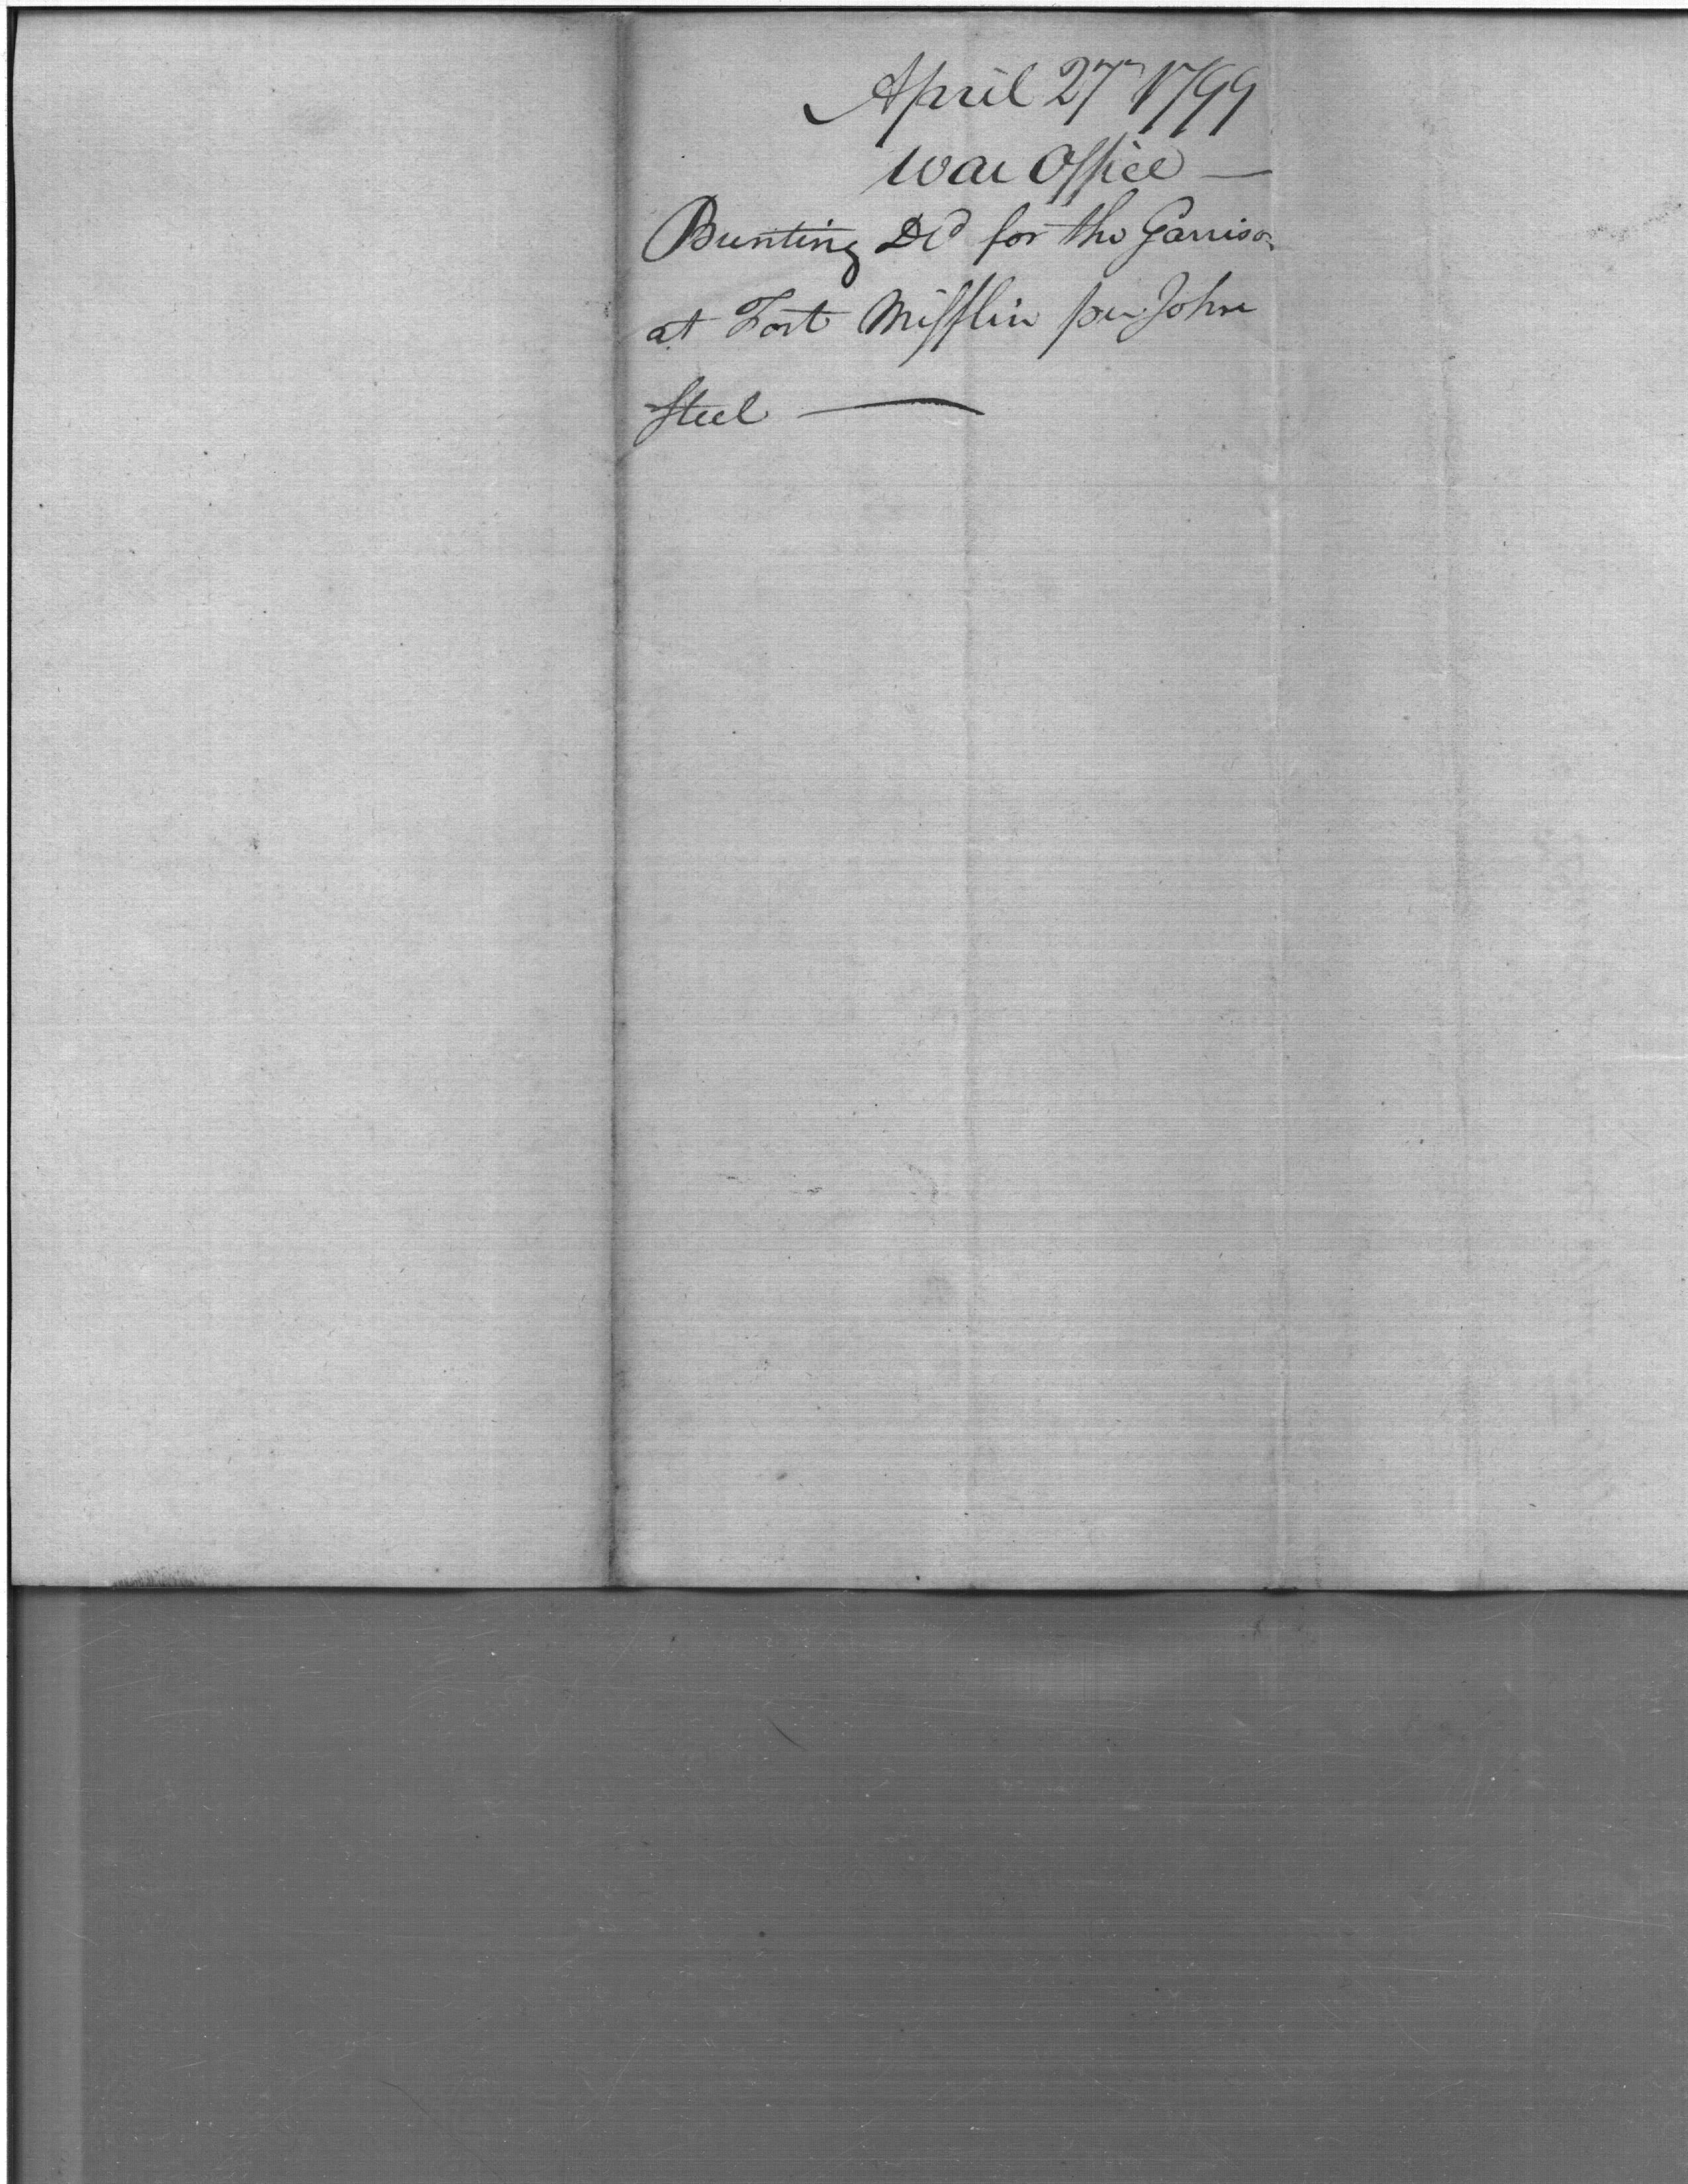 April 27 1799
War Office —
Bunting &c for the Garrison
at Fort Mifflin per John
Steel —